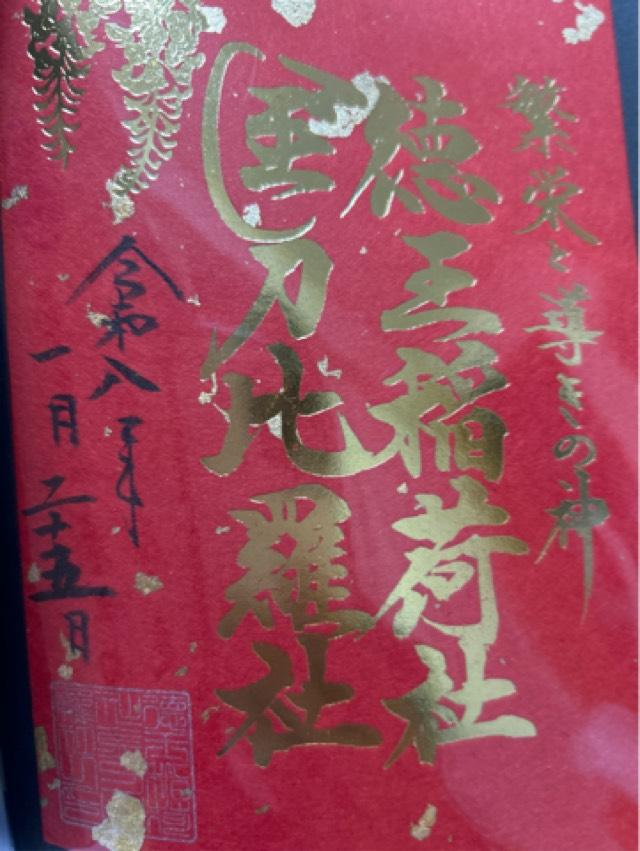 繁栄と導きの神
徳王稲荷社
金刀比羅社
令和八年
一月二十五日